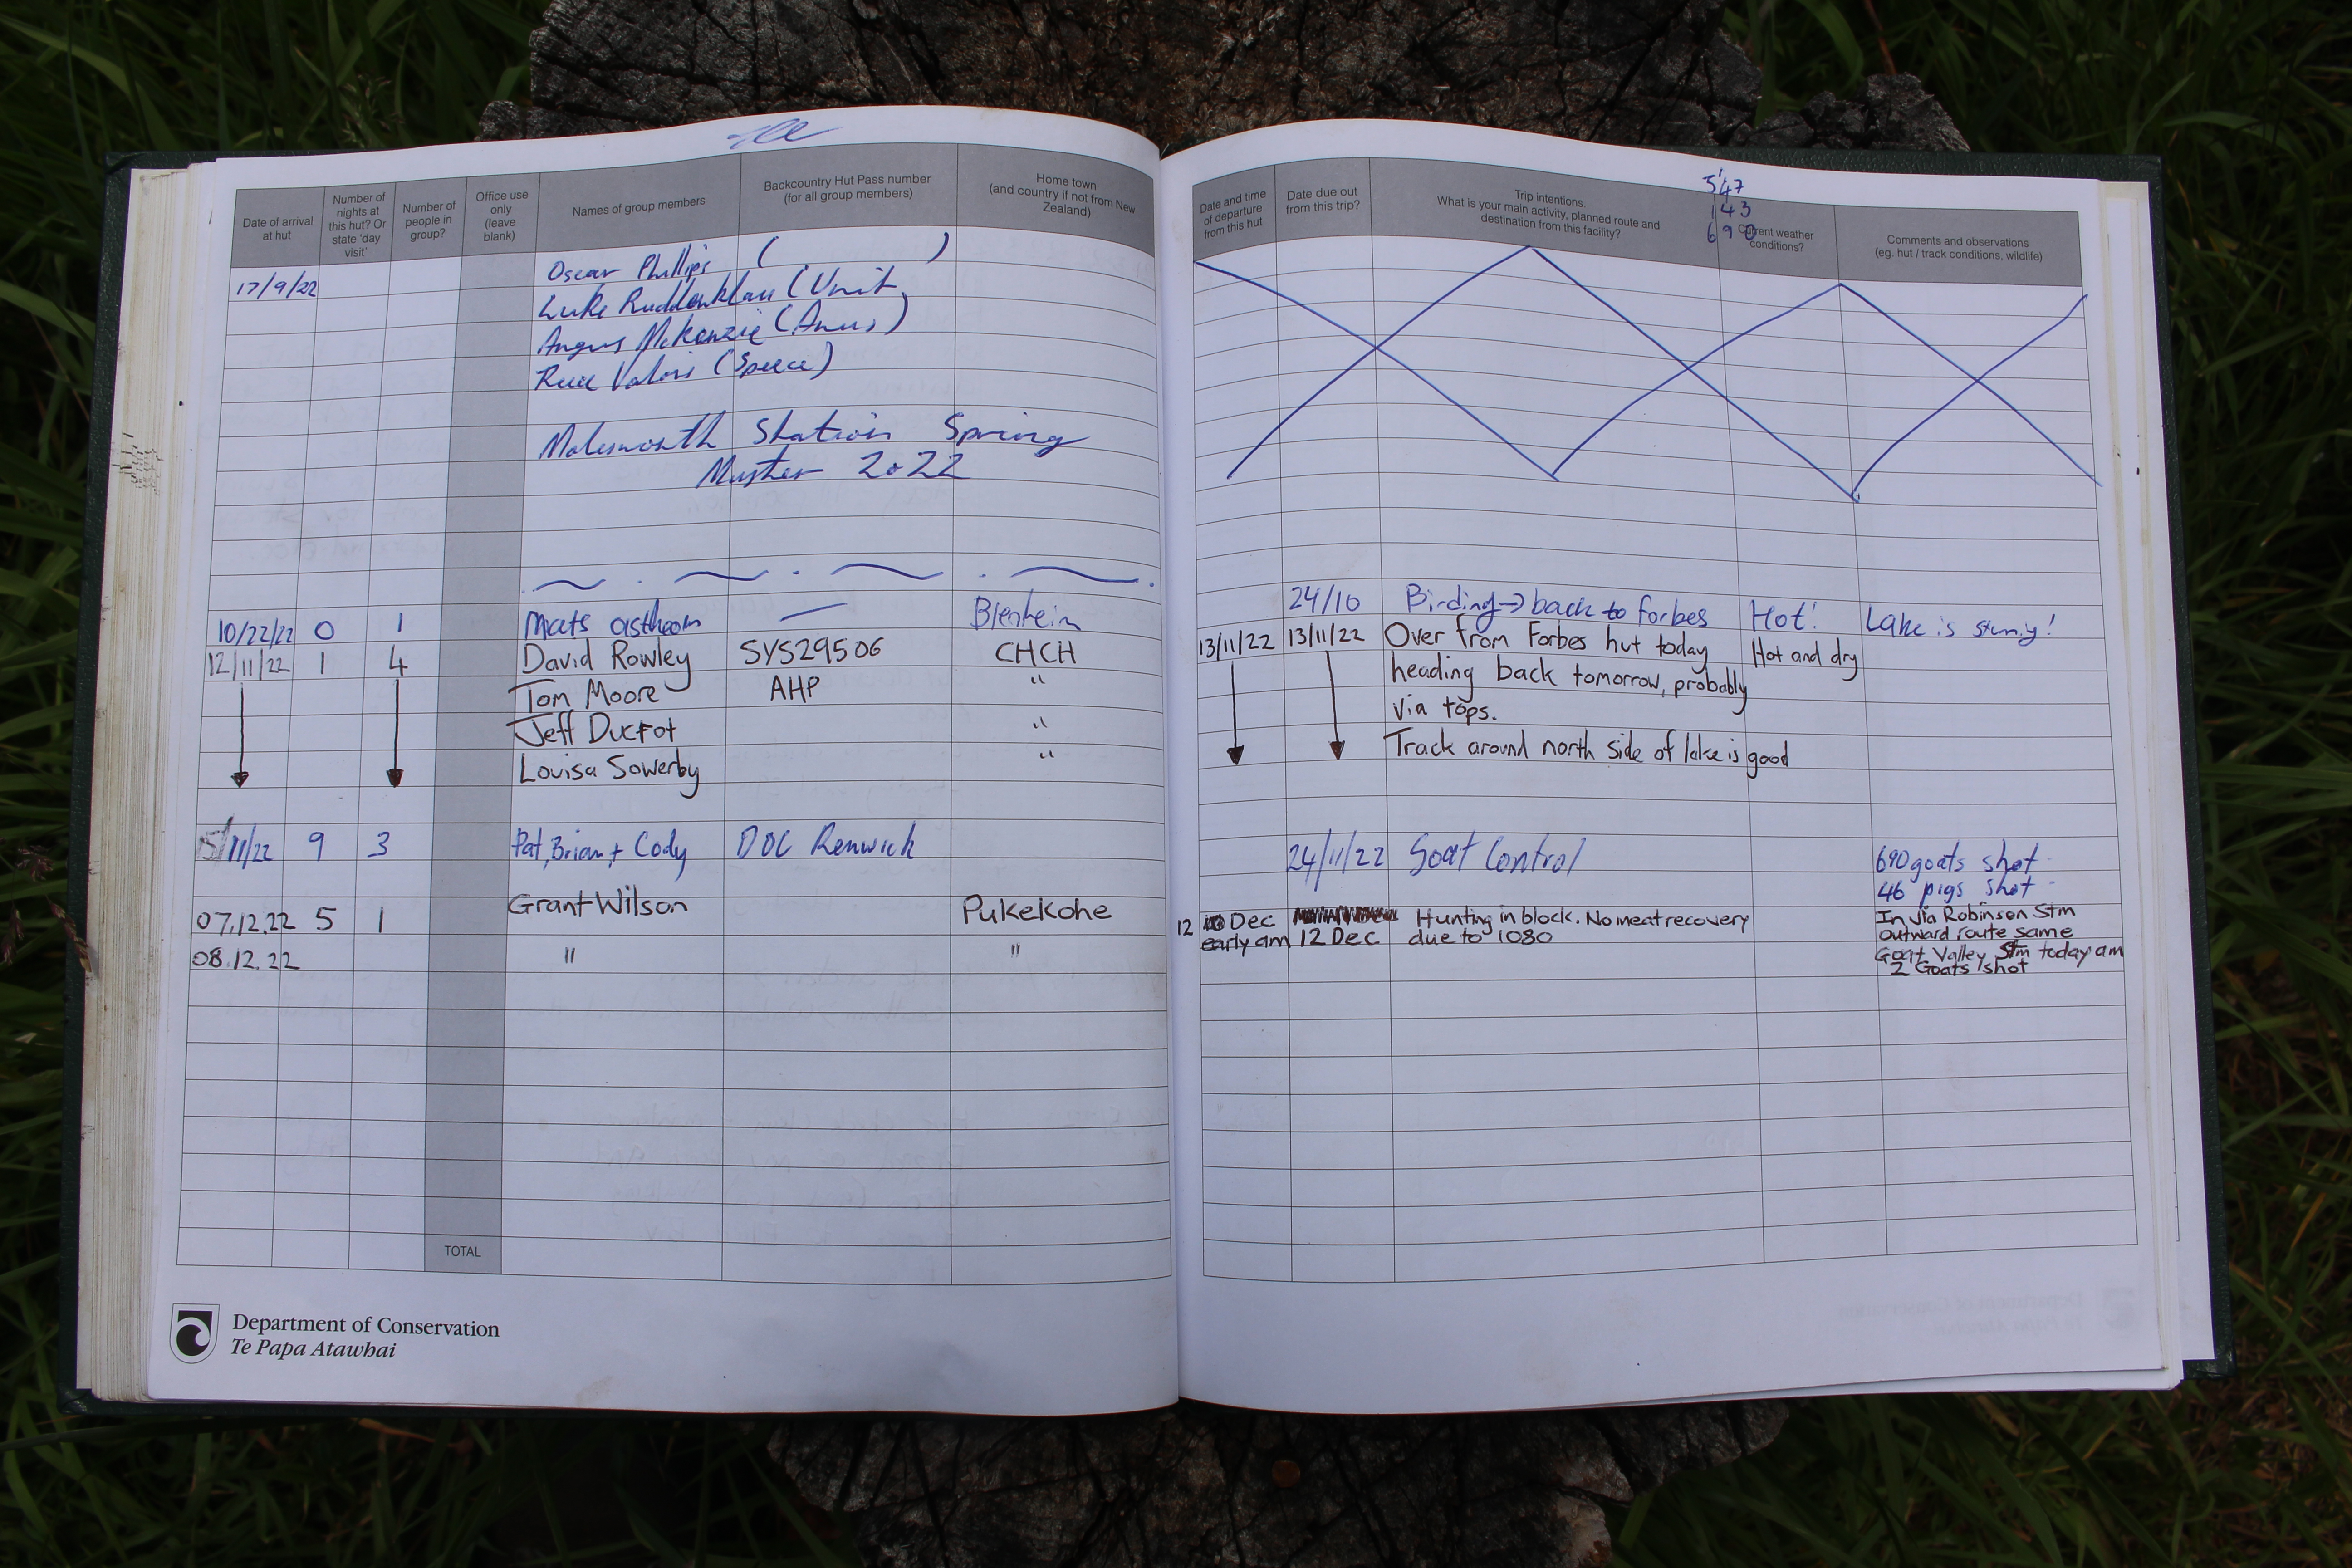 Date of arrival at hut
Number of nights at this hut? Or state 'day visit'
Number of people in group?
Office use only (leave blank)
Names of group members
Backcountry Hut Pass number (for all group members)
Home town (and country if not from New Zealand)
17/9/22 Oscar Phillips ( )
Luke Ruddenklau (Unit
Angus McKenzie
(Speece)
Molesworth Station Spring
Muster 2022
10/22/22 0 1 Mats Blenheim
12/11/22 1 4 David Rowley SYS29506 CHCH
Tom Moore AHP "
Jeff Ducrot "
Louisa Sowerby "
15/11/22 9 3 Pat, Brian + Cody DOC Renwick
07.12.22 5 1 Grant Wilson Pukekohe
08.12.22 " "
TOTAL
Department of Conservation
Te Papa Atawhai
547
143
690
Date and time of departure from this hut
Date due out from this trip?
Trip intentions.
What is your main activity, planned route and destination from this facility?
Current weather conditions?
Comments and observations
(eg. hut / track conditions, wildlife)
24/10 Birding → back to forbes Hot! Lake is
13/11/22 13/11/22 Over from Forbes hut today Hot and dry
heading back tomorrow, probably
via tops.
Track around north side of lake is good
24/11/22 Goat Control 690 goats shot
46 pigs shot
12 Dec Hunting in block. No meat recovery In via Robinson Stm
early am 12 Dec due to 1080 outward route same
Goat Valley Stm today am
2 Goats shot